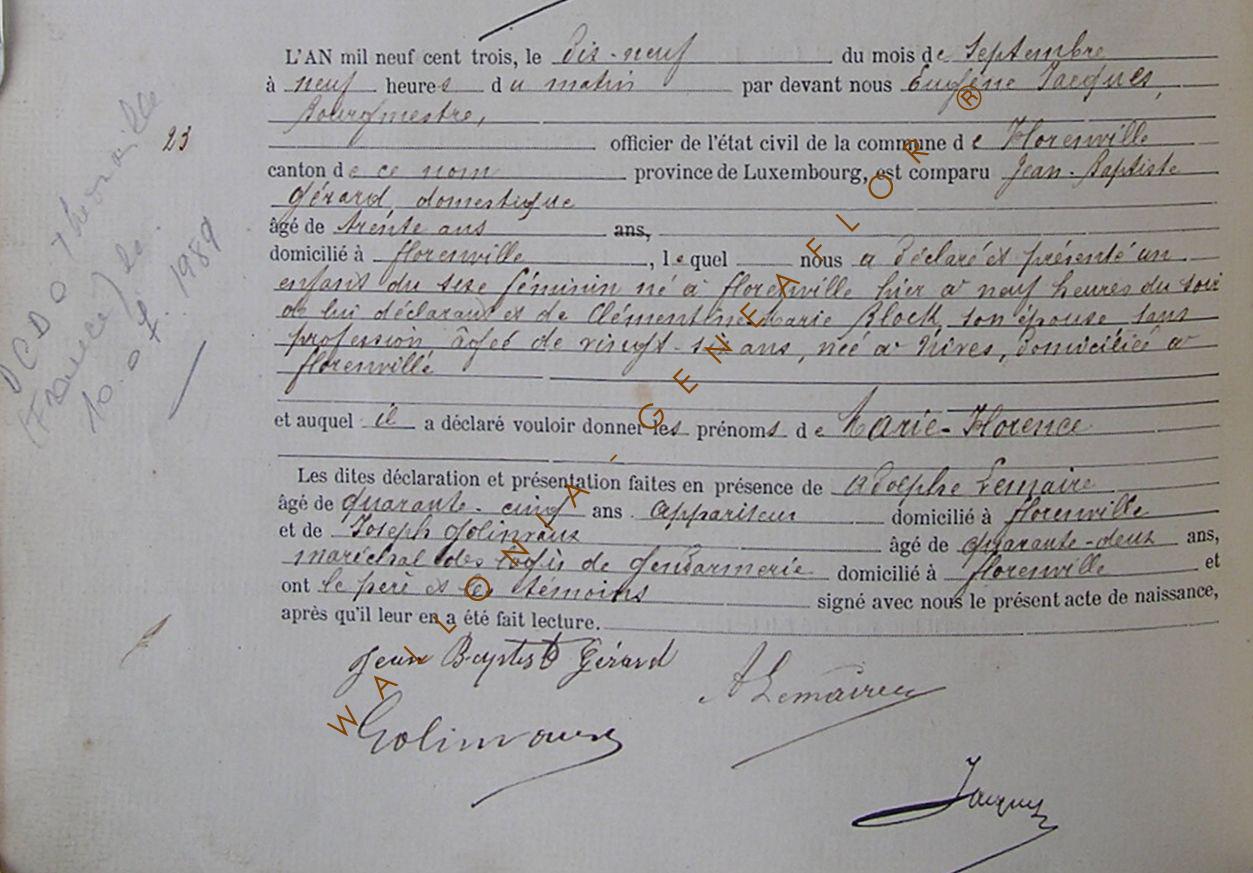 L'AN mil neuf cent trois, le Dix-neuf du mois de Septembre
à neuf heures du matin par devant nous Eugène Jacques,
Bourgmestre,
23
officier de l'état civil de la commune de Florenville
canton de ce nom province de Luxembourg, est comparu Jean-Baptiste
Gérard domestique
âgé de trente ans ans,
domicilié à florenville, lequel nous a déclaré et présenté un
enfant du sexe féminin né à florenville hier à neuf heures du soir
de lui déclarant et de Clémentine Marie Block, son épouse sans
profession âgée de vingt-six ans, née à Nives, domiciliée à
florenville
et auquel il a déclaré vouloir donner les prénoms de Marie-Florence
Les dites déclaration et présentation faites en présence de Adolphe Lemaire
âgé de quarante-cinq ans appariteur domicilié à florenville
et de Joseph Golinvaux âgé de quarante-deux ans,
maréchal des logis de Gendarmerie domicilié à florenville et
ont le père et les témoins signé avec nous le présent acte de naissance,
après qu'il leur en a été fait lecture.
Jean Baptiste Gérard
A Lemaire
Golinvaux
Jacques
DCD à
(France) le
10.07.1989
WALLONIA-GENEAFLOR ®